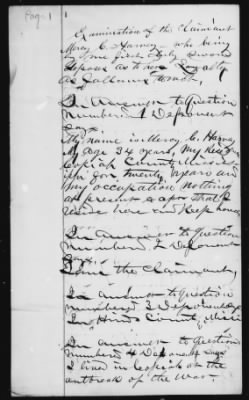 Page 1
1
Examination of the Claimant
Mercy C. Harvey who being
by me first duly sworn
deposes as to her Loyalty
as follows to wit,
In Answer to Question
number 1 Deponent
says
My name is Mercy C. Harvey
my age 34 years, my Residence
Copiah County Mississi
ppi for twenty years and
my occupation nothing
at present apor that I
reside here and Keep house
In answer to Question
number 2 Deponent
says
I am the Claimant,
In answer to question
number 3 Deponent says
In Hinds County, Missi
In answer to Question
number 4 Deponent says
I lived in Copiah at the
outbreak of the War.